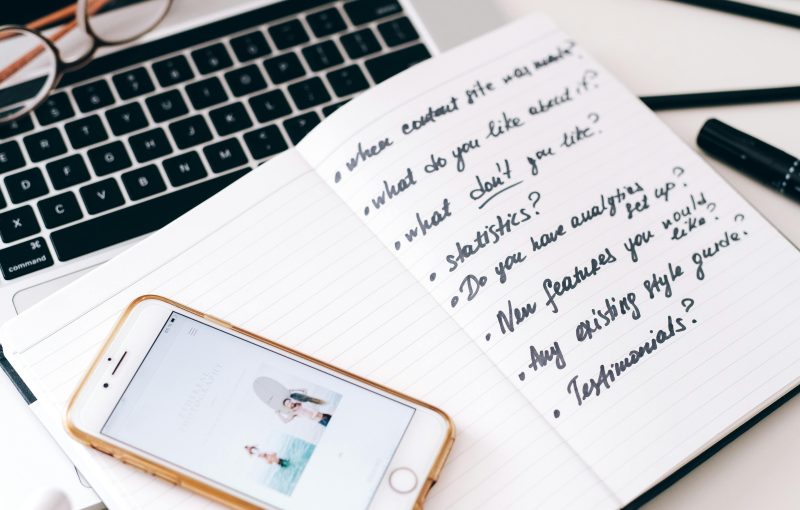 • when site was made?
• what do you like about it?
• what don't you like?
• statistics?
• Do you have analytics
set up?
• New features you would
like?
• Any existing style guide?
• Testimonials?
E R T Y
D F G H J K L
X C V B N M
⌘
command